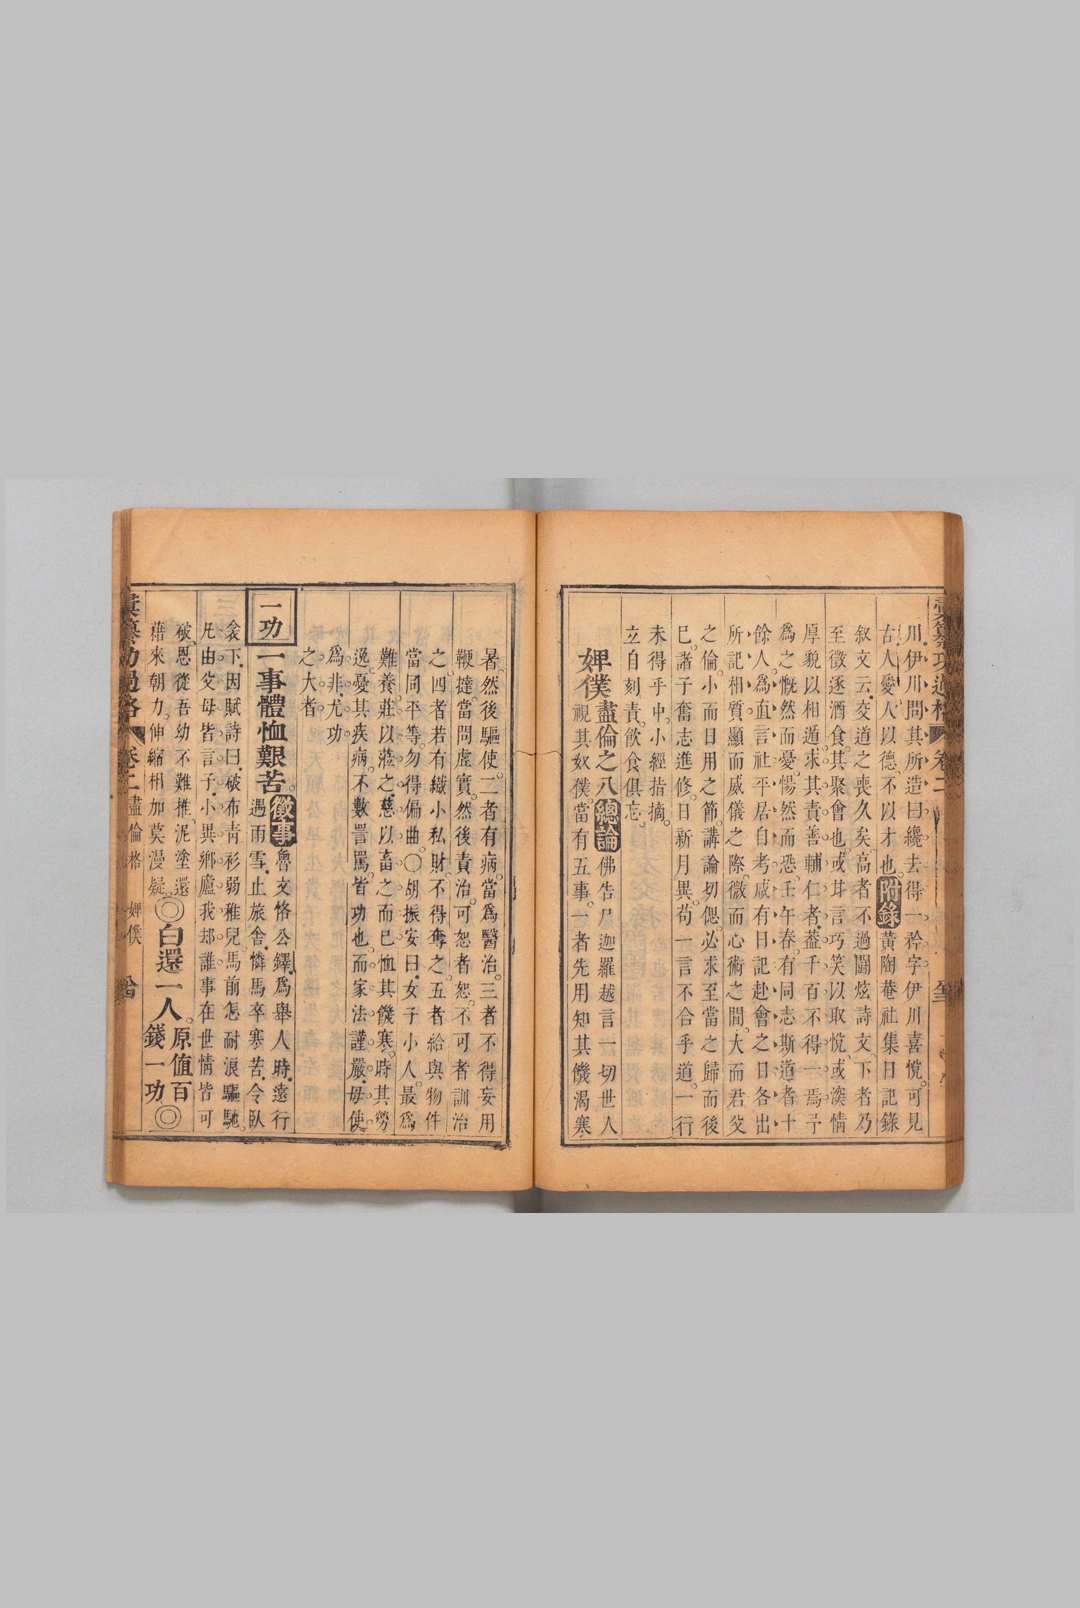 川伊川問其所造曰纔去得一矜字伊川喜悅可見
古人愛人以德不以才也附錄黃陶菴社集日記錄
叙文云交道之喪久矣高者不過鬪炫詩文下者乃
至徵逐酒食其聚會也或甘言巧笑以取悅或深情
厚貌以相遁求其責善輔仁者葢千百不得一焉予
爲之慨然而憂惕然而恐壬午春有同志斯道者十
餘人爲直言社平居自考咸有日記赴會之日各出
所記相質顯而威儀之際微而心術之間大而君父
之倫小而日用之節講論切偲必求至當之歸而後
已諸子奮志進修日新月異苟一言不合乎道一行
未得乎中小經指摘
立自刻責飲食俱忘
婢僕盡倫之八總論佛告尸迦羅越言一切世人
視其奴僕當有五事一者先用知其饑渴寒
暑然後驅使二者有病當爲醫治三者不得妄用
鞭撻當問虛實然後責治可恕者恕不可者訓治
之四者若有纖小私財不得奪之五者給與物件
當同平等勿得偏曲〇胡振安曰女子小人最爲
難養莊以蒞之慈以畜之而已恤其饑寒時其勞
逸憂其疾病不數詈罵皆功也而家法謹嚴毋使
爲非尤功
之大者
一功一事體恤艱苦徵事魯文恪公鐸爲舉人時遠行
遇雨雪止旅舍憐馬卒寒苦令臥
衾下因賦詩曰破布青衫弱稚兒馬前怎耐浪驅馳
凡由父母皆言子小異鄉廬我却誰事在世情皆可
破恩從吾幼不難推泥塗還
藉來朝力伸縮相加莫漫疑◎白還一人原值百
錢一功◎
彙纂功過格 卷二 盡倫格 婢僕